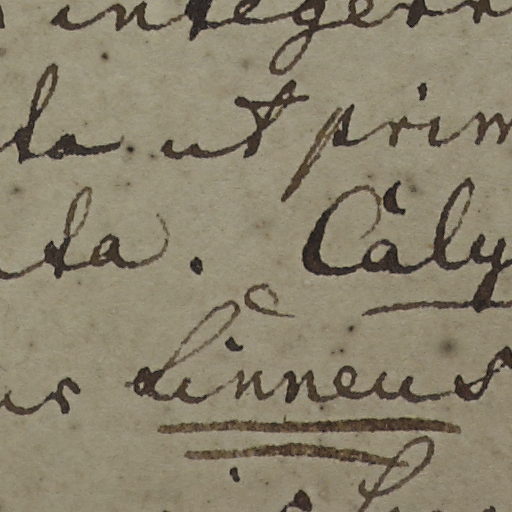 integerr
ta ut prim
ta. Caly
Linneus